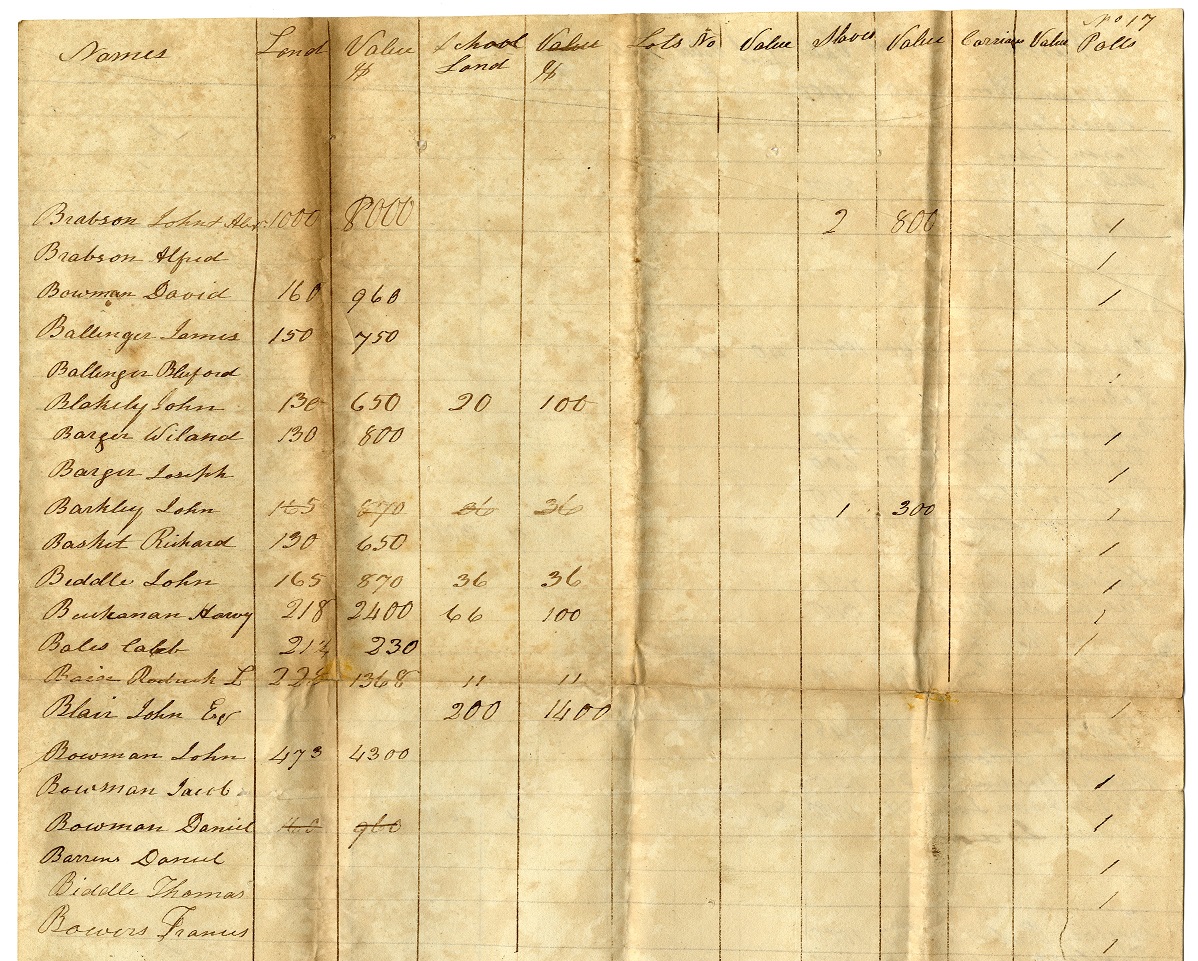 No 17
Names Land Value School Value Lots No Value Slaves Value Carriage Value Polls
$ Land $
Brabson John & 1000 8000 2 800 1
Brabson Alfred 1
Bowman David 160 960 1
Ballinger James 150 750
Ballinger Bluford 1
Blakely John 130 650 20 100
Barger Wiland 130 800 1
Barger Joseph 1
Barkley John 165 870 36 36 1 300 1
Basket Richard 130 650 1
Biddle John 165 870 36 36 1
Buckanan Harvy 218 2400 66 100 1
Bales Caleb 212 230 1
228 1368 11 11
Blair John Er 200 1400 1
Bowman John 473 4300
Bowman Jacob 1
Bowman Daniel 160 960 1
Barrens Daniel 1
Biddle Thomas 1
Bowers Francis 1